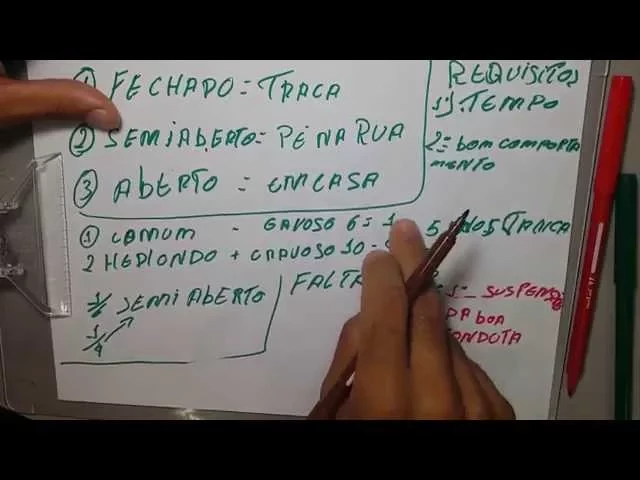 ① FECHADO = TRACA
② SEMIABERTO = PÉ NA RUA
③ ABERTO = EM CASA
REQUISITOS
1º) TEMPO
2= bom comporta
mento
① COMUM - GAVOSO 6 = 1
2 HEDIONDO + GRAVOSO 10
5 TRANCA
1/6 SEMI ABERTO
1/4
FALTA
SUSPENSÃO
DA boa
CONDUTA